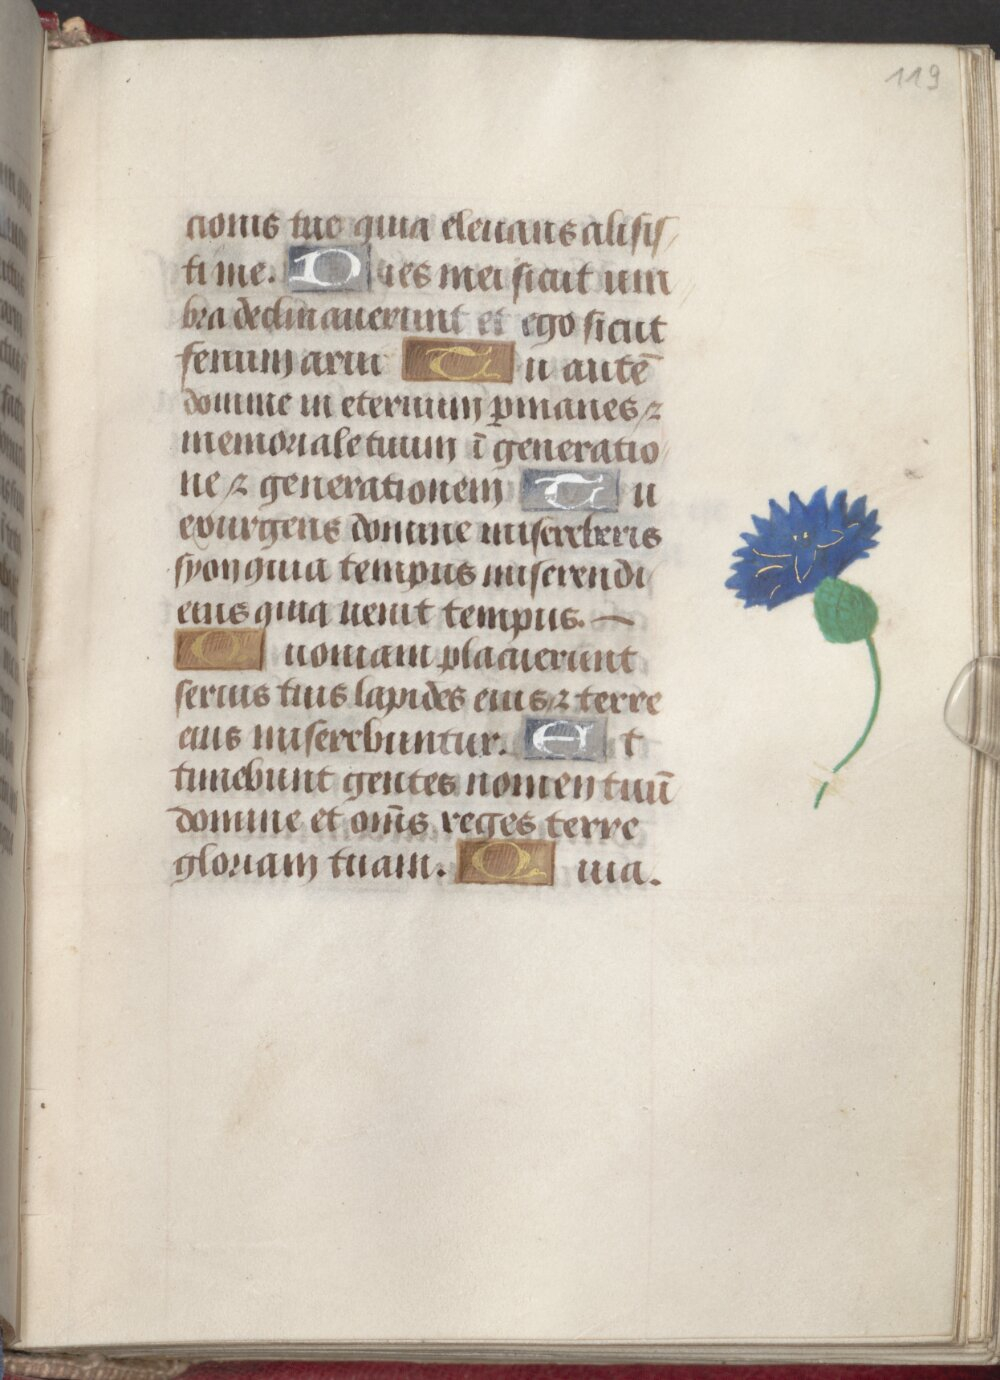 119
cionis tue quia eleuans alisis
ti me. Dies mei sicut um
bra declinauerunt et ego sicut
fenum arui Tu autē
domine in eternum ꝑmanes ⁊
memoriale tuum ī generatio
ne ⁊ generationem Tu
exurgens domine misereberis
syon quia tempus miserendi
eius quia uenit tempus.
Quoniam placuerunt
seruis tuis lapides eius ⁊ terre
eius miserebuntur. Et
timebunt gentes nomen tuū
domine et om̄s reges terre
gloriam tuam. Quia.